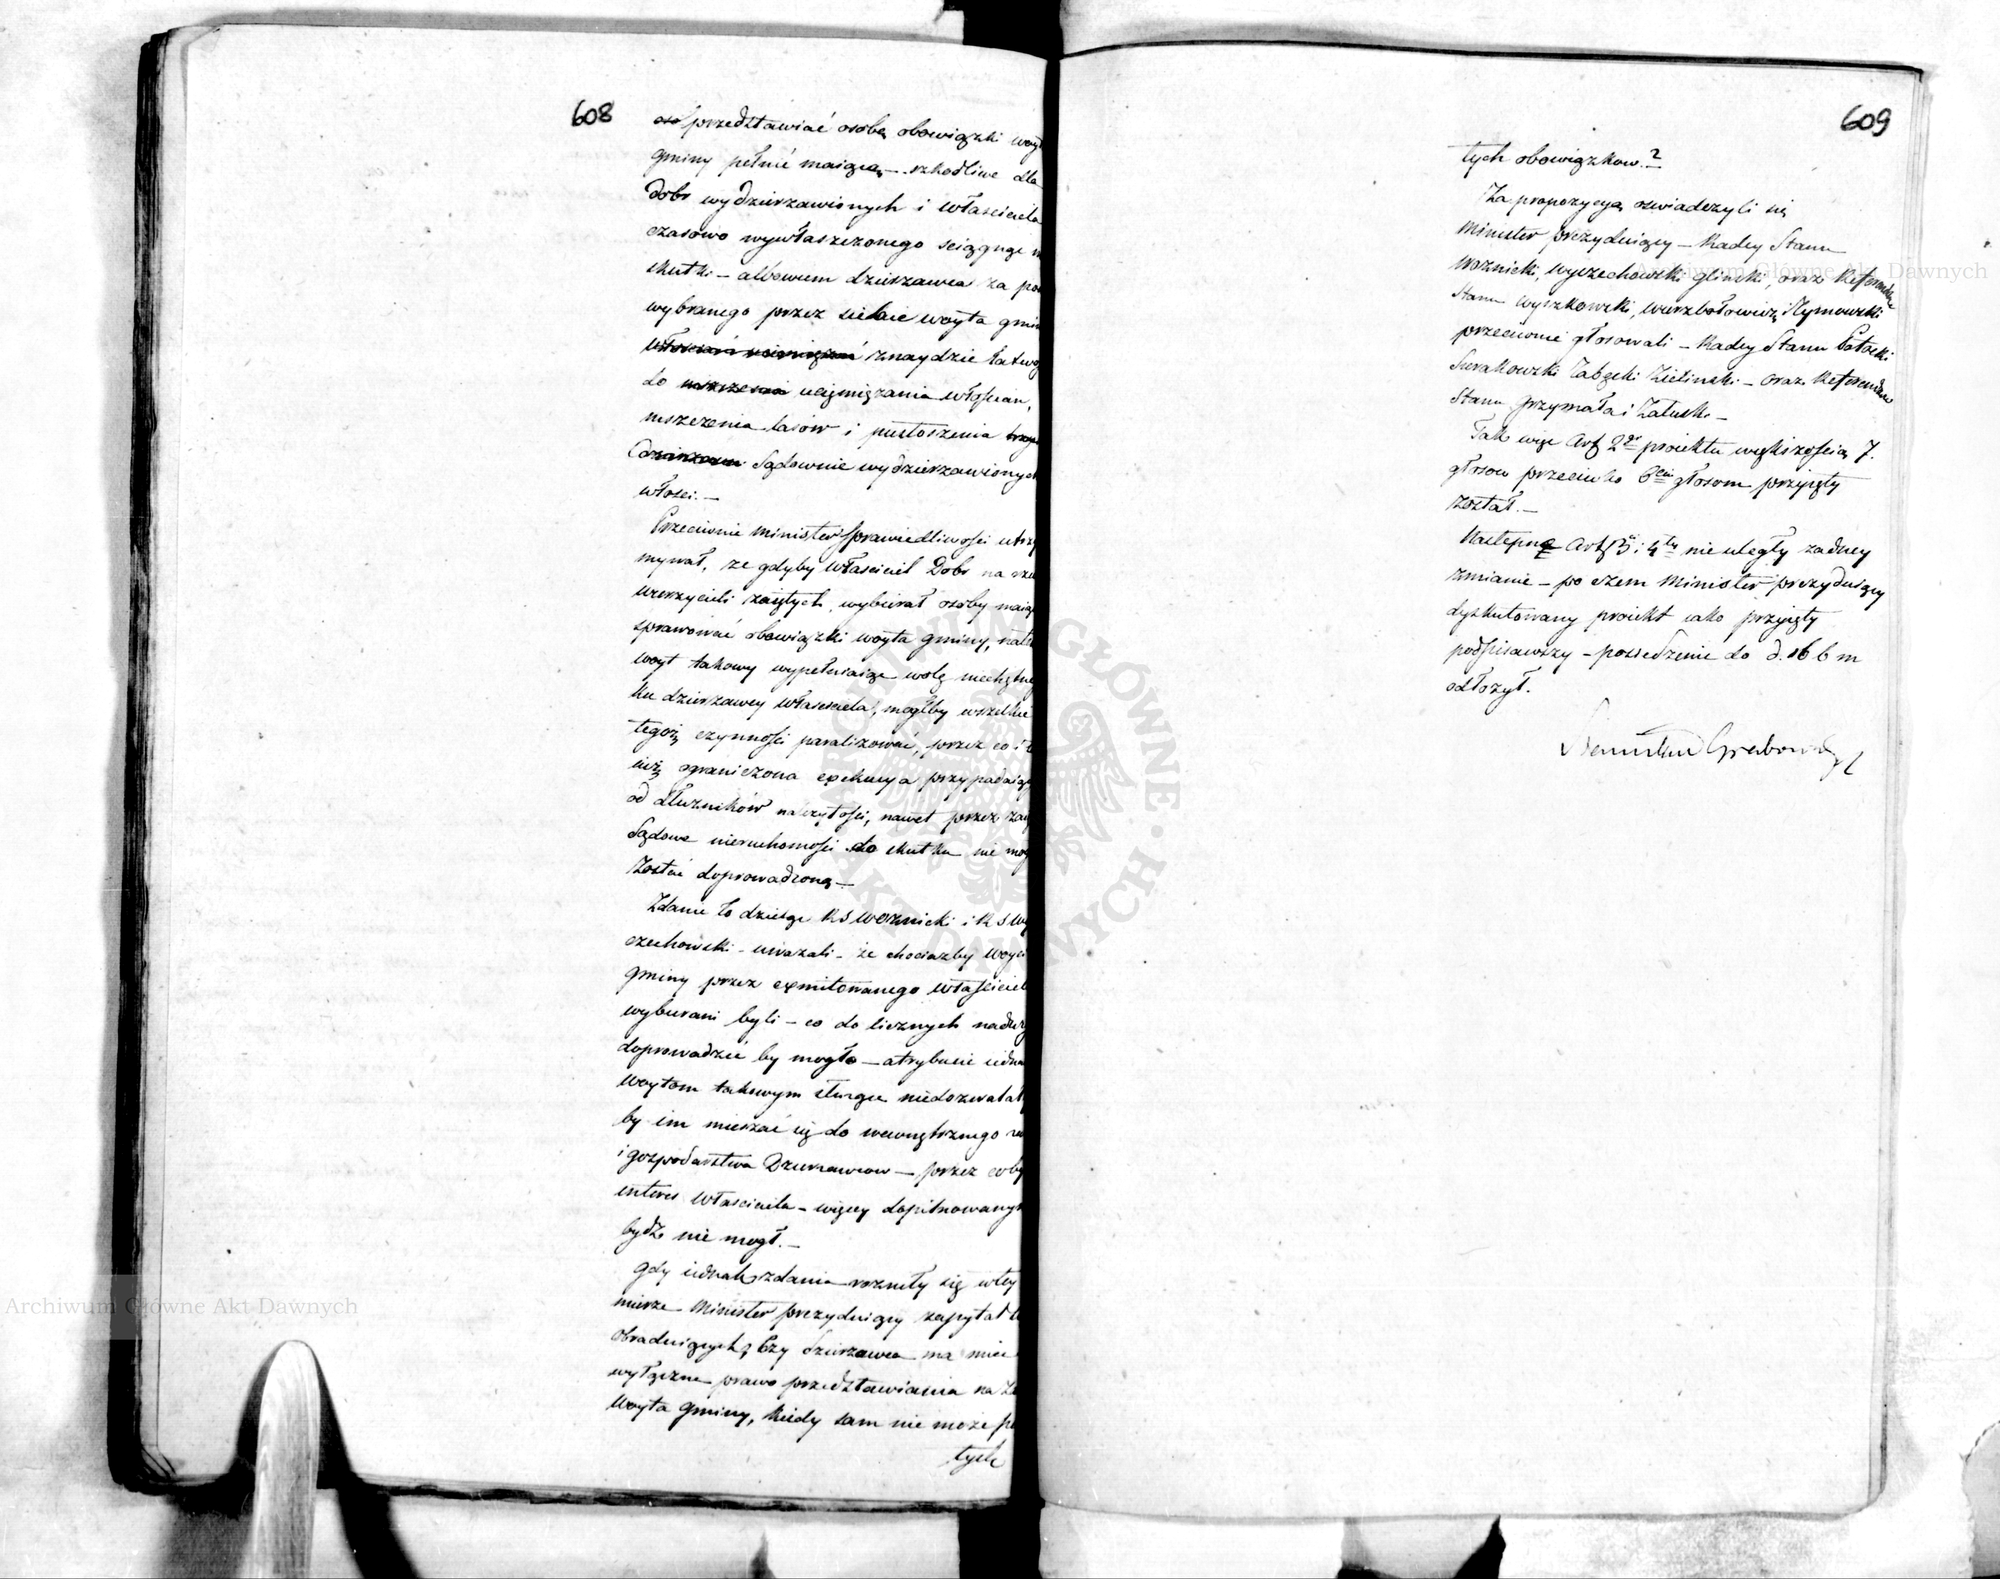 608
przedstawiać osobę obowiązki woy
gminy pełnić maiącą — szkodliwe dla
Dobr wydzierzawionych i właściciela
czasowo wywłaszczonego sciągnąc
skutki — albowiem dzierzawca za po
wybranego przez siebie woyta gmi
znaydzie łatwo
do uciemiężania włościan,
niszczenia lasów i pustoszenia
Sądownie wydzierzawionych
włości. —
Przeciwnie Minister Sprawiedliwości utrzy
mywał, ze gdyby właściciel Dobr na rze
wierzycieli zaiętych, wybierał osoby maią
sprawować obowiązki woyta gminy, nat
woyt takowy wypełniaiąc wolę niechętne
ku dzierzawcy właściciela, mogłby wszelkie
tegoż czynności paralizować, przez co i
iuż ograniczona exekucya przypadaiąc
od dłuzników należytości, nawet przez zaię
Sądowe nieruchomości do skutku nie mog
zostać doprowadzoną —
Zdanie to dzieląc R S Woznicki i R S Wy
czechowski - uwazali - że chociazby woyci
gminy przez exmitowanego właściciel
wybierani byli — co do licznych naduży
doprowadzić by mogło — atrybucie iedna
woytom takowym służące niedozwalał
by im mieszać się do wewnętrznego
i gospodarstwa Dzierzawcow — przez coby
interes właściciela — więcey dopilnowany
bydź nie mogł. —
Gdy iednak zdania rozniły się w tey
mierze Minister prezyduiący zapytał
obraduiących, Czy dzierzawca ma mieć
wyłączne prawo przedstawiania na Z
Woyta Gminy, kiedy sam nie może pe
tych
609
tych obowiązkow.?
Za propozycyą oswiadczyli się
Minister prezyduiący — Radcy Stanu
Woznicki, Wyczechowski Gliński, oraz Referendarze
Stanu Wyszkowski, Wierzbołowicz i Hymowski
przeciwnie głosowali — Radcy Stanu Potocki
Surakowski Tabęcki Zieliński — oraz Referendarze
Stanu Grzymała i Załuski —
Tak więc Art 2gi proiektu większością 7.
głosow przeciwko 6ciu głosom przyięty
został. —
Następne Art 3. i 4ty nie uległy żadney
zmianie — po czem Minister prezyduiący
dyskutowany proiekt iako przyięty
podpisawszy — posiedzenie do d. 16 b m
odłożył.
Stanisław Grabowski
Archiwum Główne Akt Dawnych
Archiwum Główne Akt Dawnych
ARCHIWUM GŁÓWNE AKT DAWNYCH